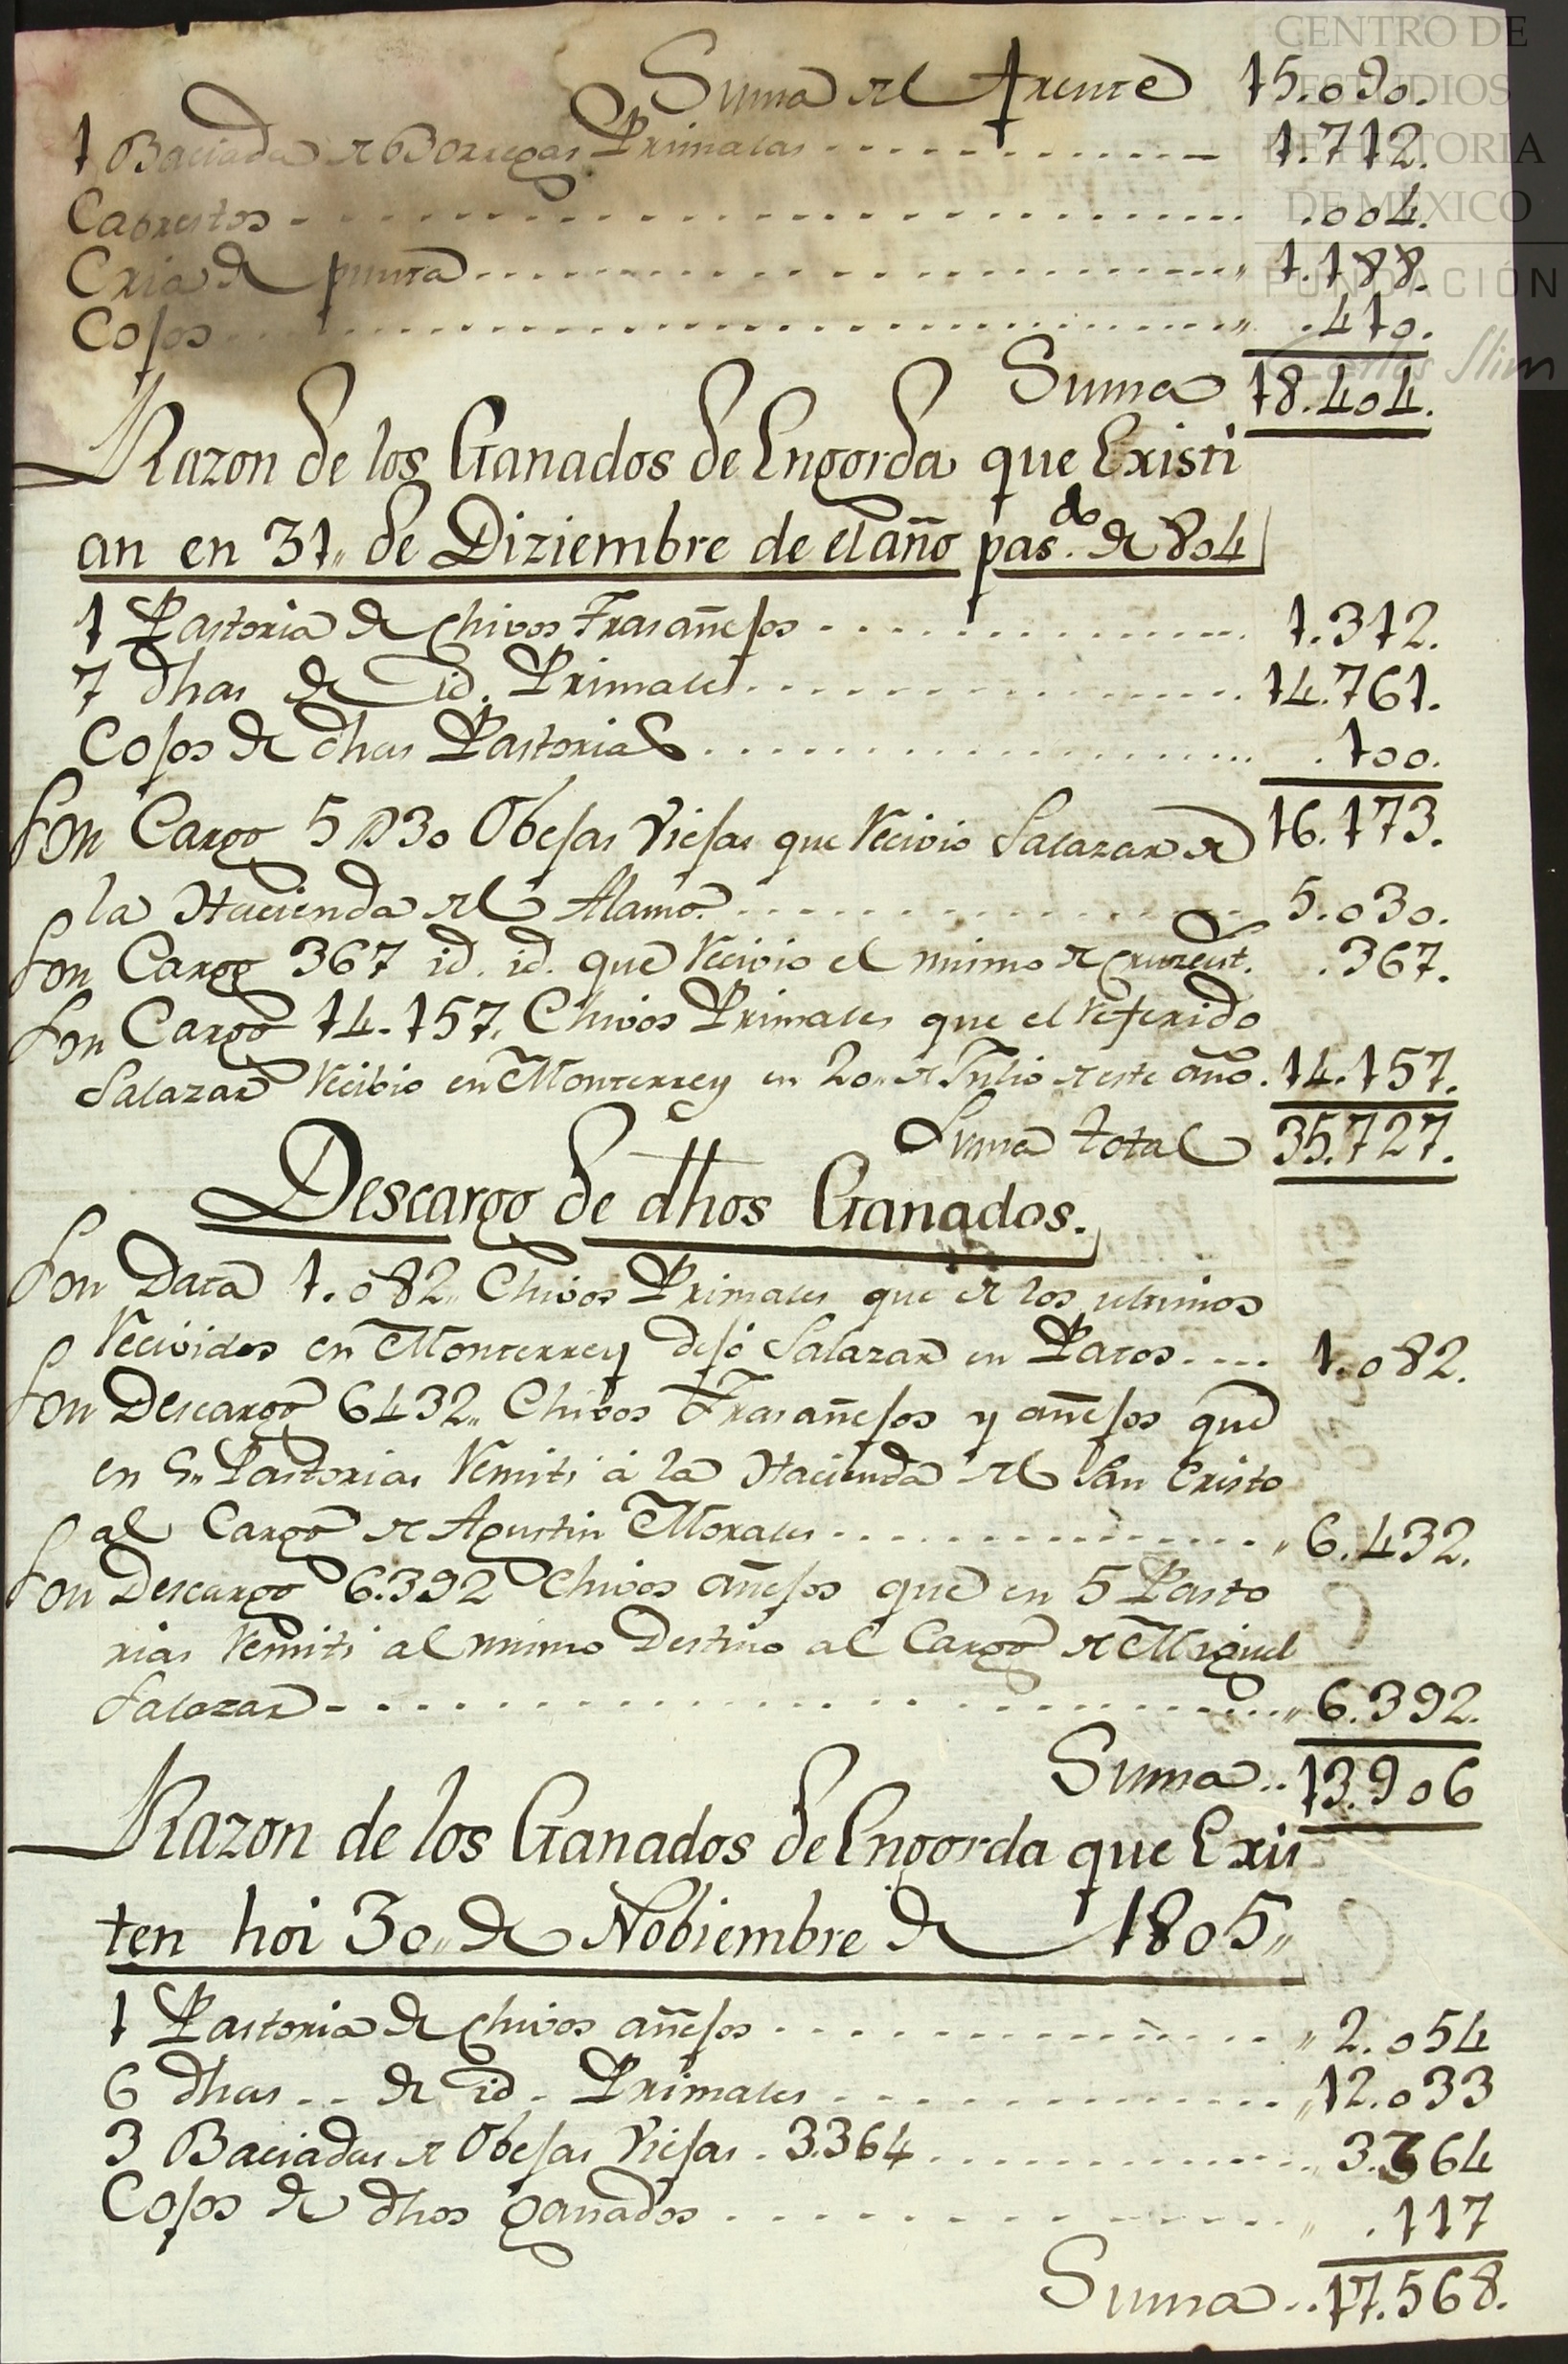 CENTRO DE
ESTUDIOS
DE HISTORIA
DE MEXICO
FUNDACIÓN
Carlos Slim
Suma del frente 15.090.
1 Baciada de Borregas Primalas 1.712.
Cabrestos .004.
Cria de punta 1.188.
Cojos .410.
Suma 18.404.
Razon de los Ganados de Engorda que Existi
an en 31 de Diziembre de el año pas.do de 804
1 Pastoria de Chivos Trasañejos 1.312.
7 dhas de id. Primales 14.761.
Cojos de dhas Pastorias .100.
16.173.
Son Cargo 5 D30 Obejas Viejas que Recivio Salazar de
la Hacienda del Alamo. 5.030.
Son Cargo 367 id. id. que Recivio el mismo de .367.
Son Cargo 14.157, Chivos Primales que el Referido
Salazar Recibio en Monterrey en 20 de Julio de este año. 14.157.
Suma total 35.727.
Descargo de dhos Ganados.
Son Data 1.082 Chivos Primales que de los ultimos
Recividos en Monterrey dejó Salazar en Patos.... 1.082.
Son Descargo 6432 Chivos Trasañejos y añejos que
en 5 Pastorias Remiti á la Hacienda del San Cristo
al Cargo de Agustin Morales 6.432.
Son Descargo 6.392 Chivos añejos que en 5 Pasto
rias Remiti al mismo Destino al Cargo de Miguel
Salazar 6.392.
Suma.. 13.906
Razon de los Ganados de Engorda que Exis
ten hoi 30 de Nobiembre de 1805
1 Pastoria de Chivos añejos 2.054
6 dhas.. de id. Primales 12.033
3 Baciadas de Obejas Viejas. 3.364 3.364
Cojos de dhos ganados .117
Suma.. 17.568.